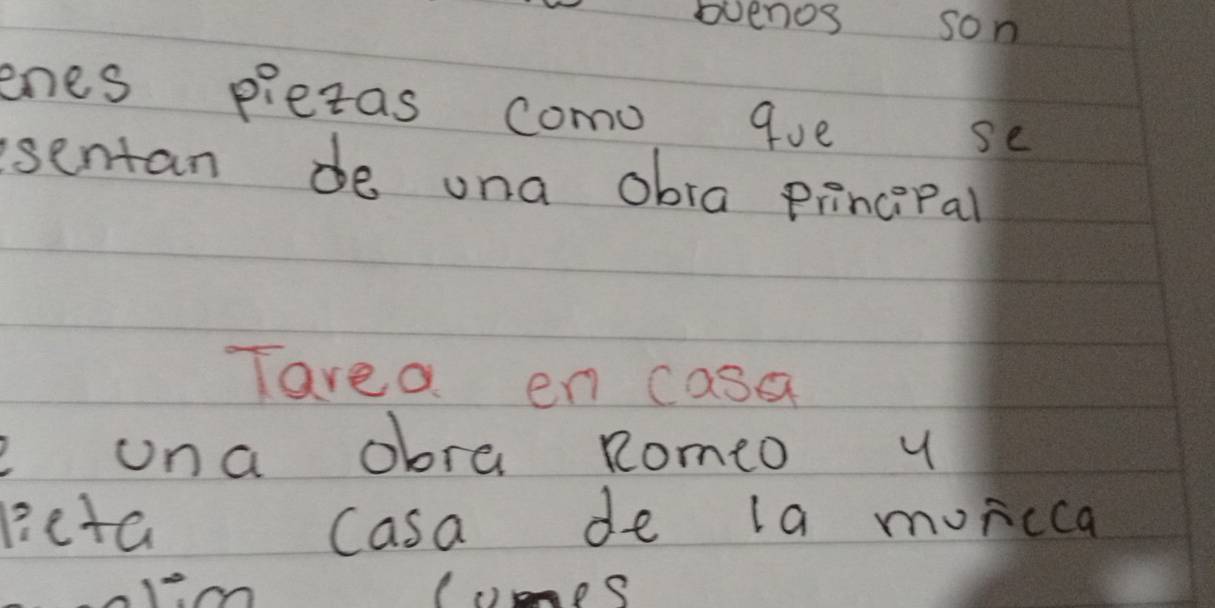 buenos son
enes piezas como que se
sentan de una obra principal
Tarea en casa
una obra Romeo y
lieta casa de la muñeca